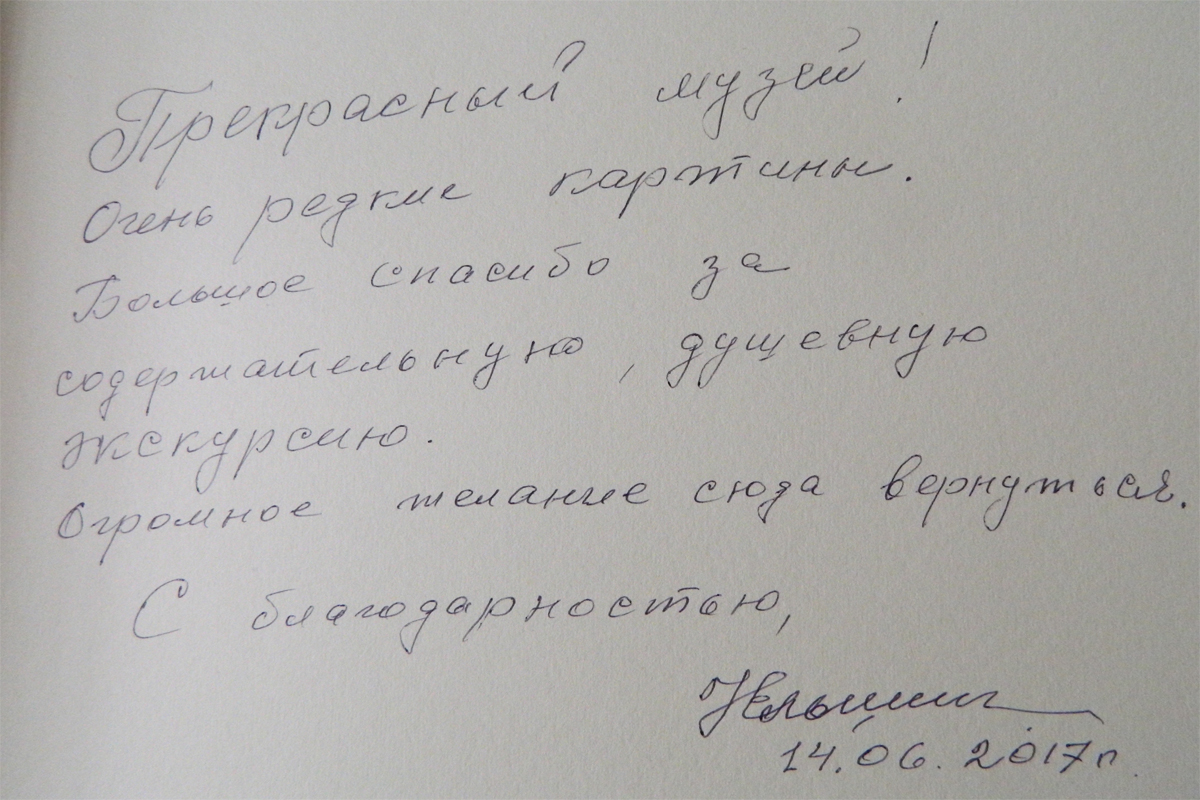 Прекрасный музей!
Очень редкие картины.
Большое спасибо за
содержательную, душевную
экскурсию.
Огромное желание сюда вернуться.
С благодарностью,
14.06.2017г.